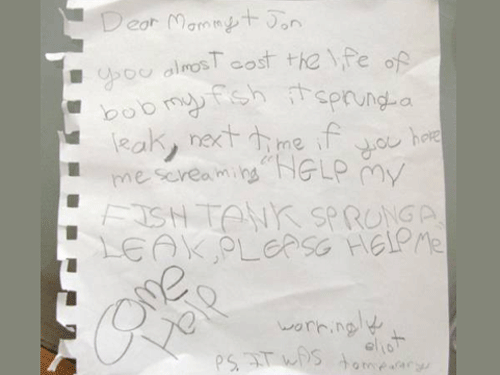 Dear Mommy + Jon
you almost cost the life of
bob my fish it sprung a
leak, next time if you here
me screaming "HELP MY
FISH TANK SPRUNG A
LEAK, PLEASE HELP Me"
COme
Help
worringly
eliot
P.S. IT WAS temporary